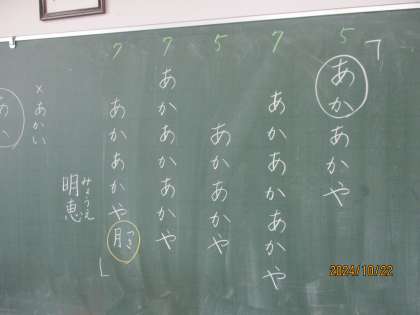 5
「あかあかや
7
あかあかあかや
5
あかあかや
7
あかあかあかや
7
あかあかや月」
つき
みょうえ
明恵
×あかい
2024/10/22